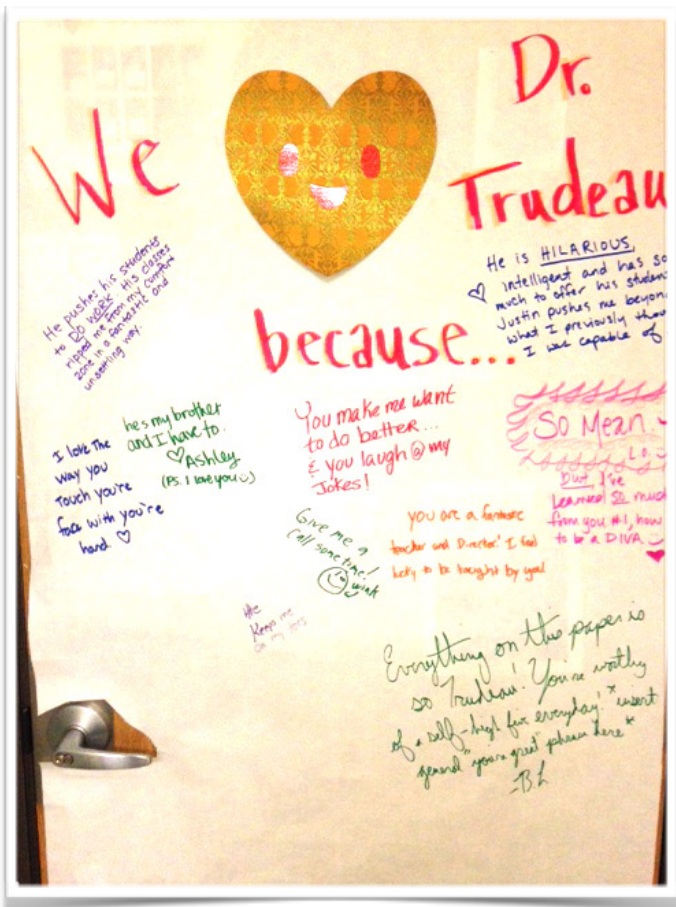 We
Dr.
Trudeau
because...
He pushes his students
to DO WORK. His classes
ripped me from my comfort
zone in a fantastic and
unsettling way.
He is HILARIOUS,
intelligent and has so
much to offer his studen
Justin pushes me beyon
what I previously thou
I was capable of
I love The
way you
Touch you're
face with you're
hand ♡
he's my brother
and I have to.
♡Ashley
(Ps. I love you
You make me want
to do better...
& you laugh @ my
Jokes!
So Mean
But I've
Learned SO much
from you #1, how
to be a DIVA
Give me a
Call sometime!
wink
you are a fantastic
teacher and Director! I feel
lucky to be taught by you!
He
Keeps me
on my toes
Everything on this paper is
so Trudeau! You're worthy
of a self-high five everyday! *insert
general "you're great" phrase here*
-B.L